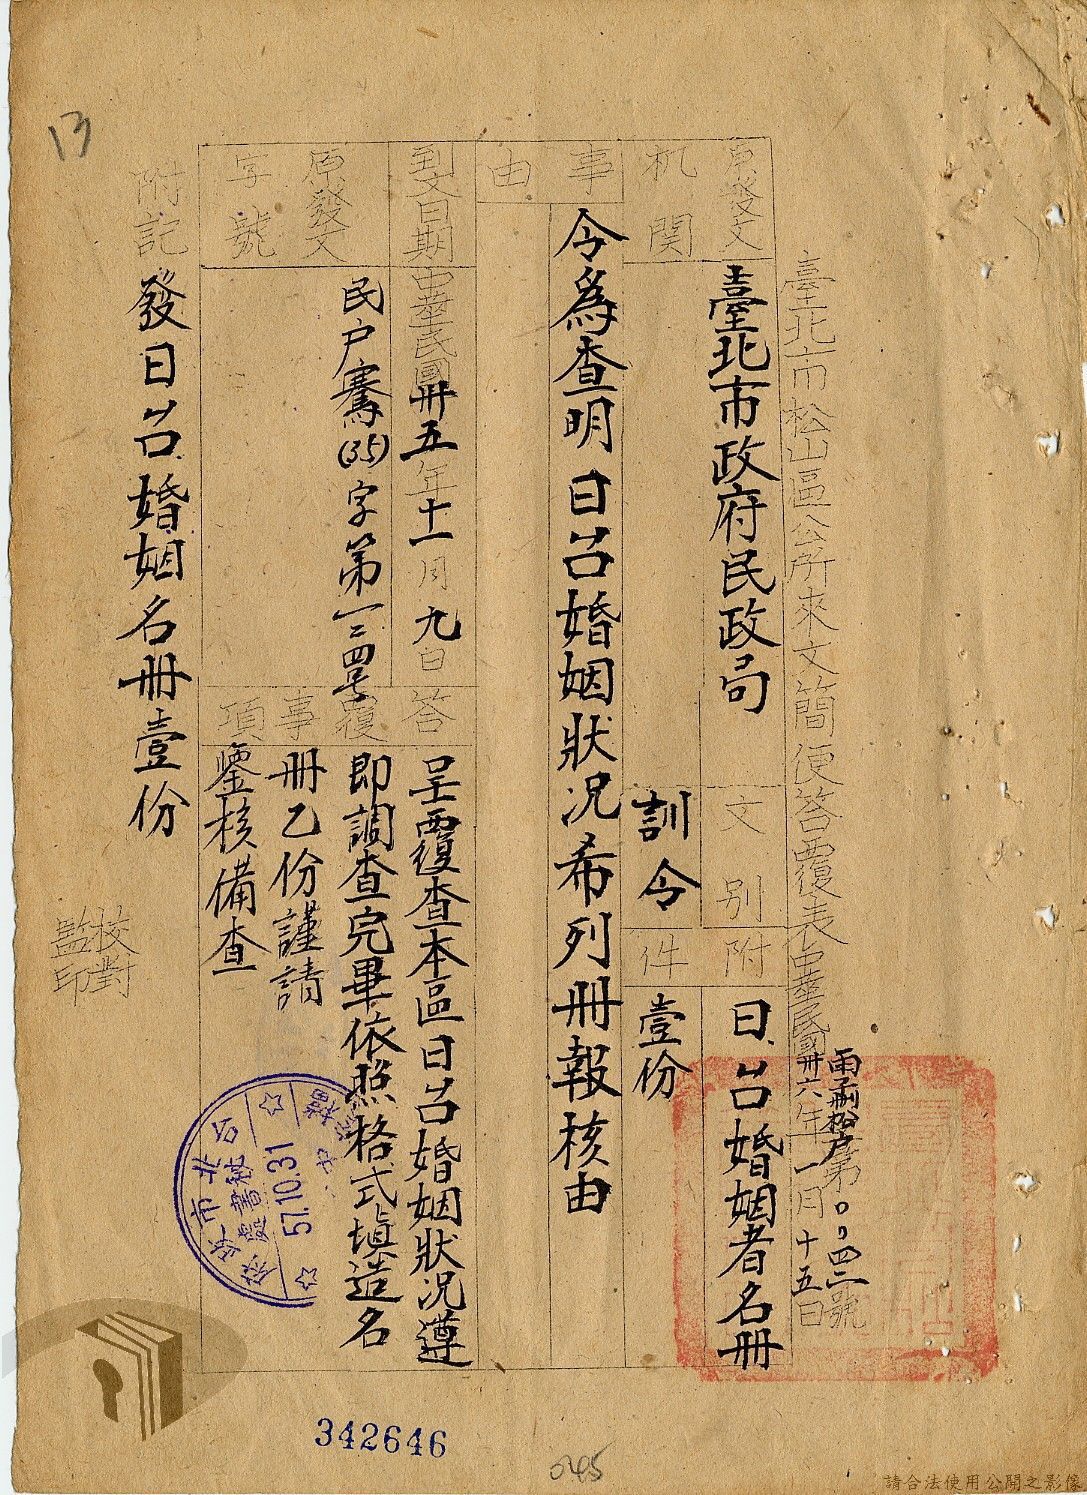 臺北市松山區公所來文簡便答覆表
中華民國卅六年一月十五日
松戶第0042號
原發文机関
臺北市政府民政局
文別
訓令
附件
日台婚姻者名册
壹份
事由
令為查明日台婚姻狀况希列册報核由
到文日期
中華民國卅五年十一月九日
原發文字號
民户騫(35)字第一二四七號
答覆事項
呈覆查本區日台婚姻狀况遵
即調查完畢依照格式填造名
册乙份謹請
鑒核備查
附記
發日台婚姻名册壹份
校對
監印
13
台北市政府
秘書處
57.10.31
342646
045
請合法使用公開之影像